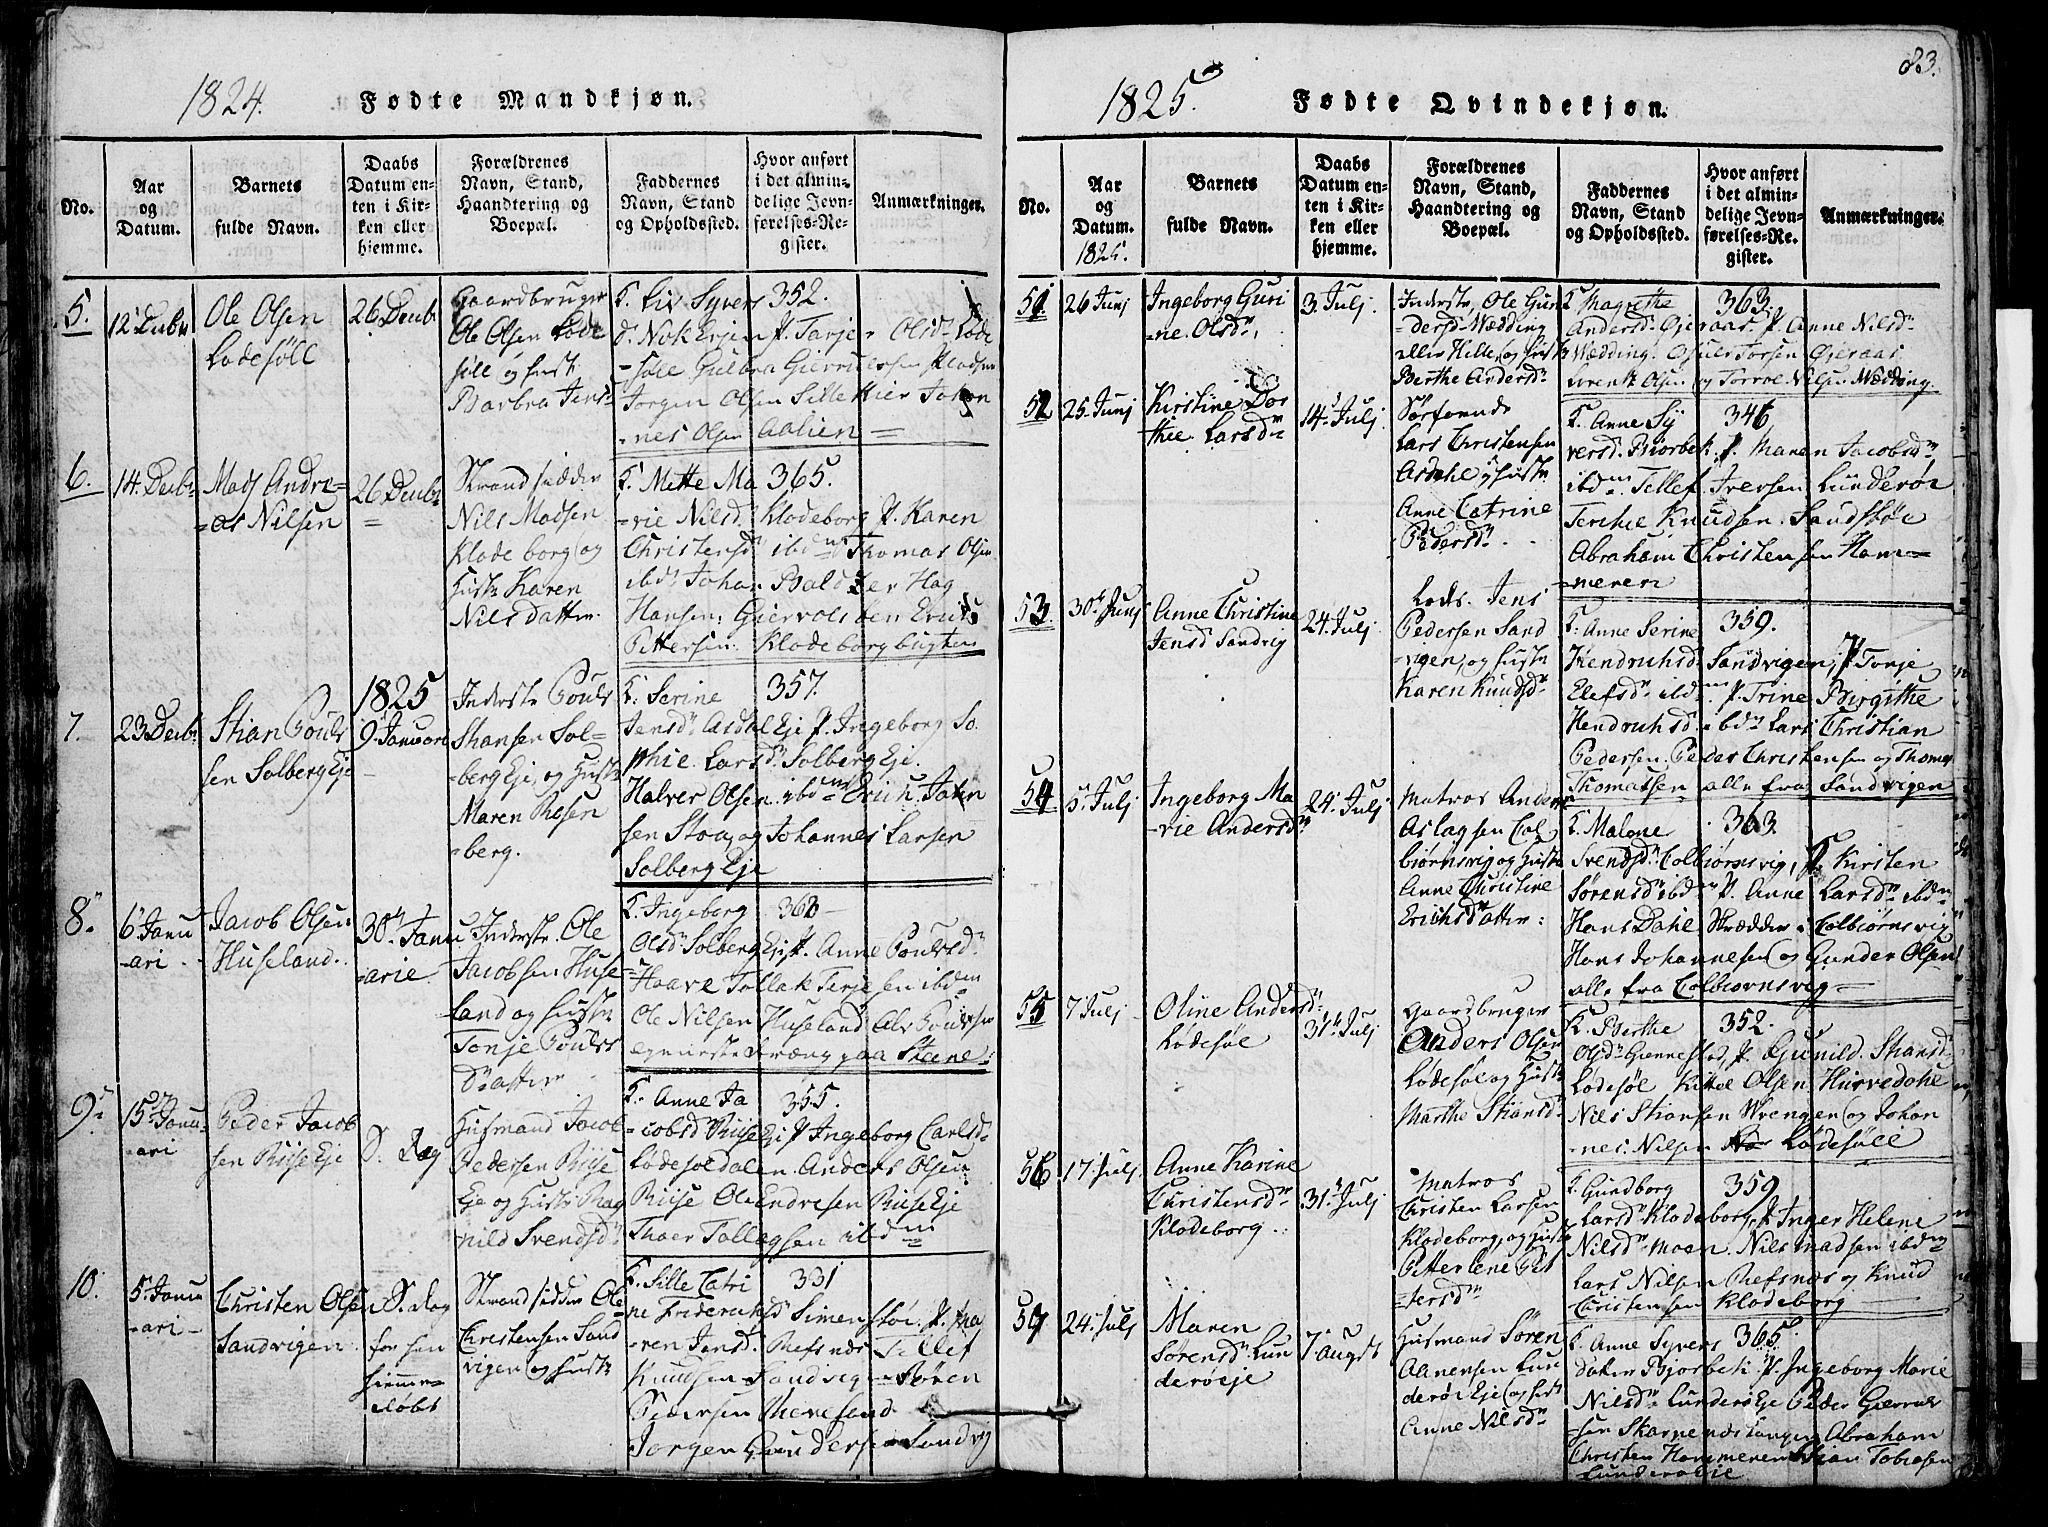 1824. Fødte Mandkjøn.
No.
Aar
og
Datum.
Barnets
fulde Navn.
Daabs
Datum en-
ten i Kir-
ken eller
hjemme.
Forældrenes
Navn, Stand,
Haandtering og
Boepæl.
Faddernes
Navn, Stand
og Opholdssted.
Hvor anført
i det almin-
delige Jevn-
førelses-Re-
gister.
Anmærkninger.
5.
12 Decbr
Ole Olsen
Lodesøll
26 Decbr
Gaardbruger
Ole Olsen Lode
søll og hust
Barbra Jens
F. Liv Syvers 352.
Jørgen Olsen
nes Olsen
6.
14. Decbr
Mads Andre-
-as Nilsen
26 Decbr
Strandsidder
Nils Madsen
Klodeborg og
Hust Karen
Nilsdatter
F. Mette Ma 365.
-rie Nilsd. Klodeborg P. Karen
Christensd ibdm Thomas Olsen
Pettersen. Klodeborgbugten
7.
23 Decbr
Stian Pouls
sen Solberg Eje
1825
9 Januari
Inderste Pouls
Stiansen Sol-
-berg Eje og Hust
Maren Rosen
-berg.
F. Serine 357.
Jensd. Asdal Eje P. Ingeborg So
phie Larsd. Solberg Eje.
Halver Olsen ibdm Erich Jahn
sen Stoa og Johannes Larsen
Solberg Eje
8.
6 Janu
-ari
Jacob Olsen
Huseland.
30 Janu
-arie
Inderste Ole
Jacobsen Huse
land og Hust
Tonje Pouls
Datter
F. Ingeborg 363
Olsd Solberg Eje P. Anne Poulsd
Haave Tollak Terjesen ibdm
Ole Nilsen Huseland
9.
15 Janu
-ari
Peder Jacob
sen Riise Eje
D. Dag
Husmand Jacob
Pedersen Riise
Eje og Hust Rag
nild Svendsd
F. Anne Ja 355.
-cobsd Riise Eje P. Ingeborg Carlsd
Lødesoldalen. Anders Olsen
Riise Ole Endresen Riise Eje
Thoer Tollagsen ibdm
10.
5. Janu
-ari
Christen Olsen
Sandvigen
S. Dag
Strandsidder Ole
Christensen Sand
vigen og Hust
F. Sille Catri 331
Knudsen Sandvig Søren
Pedersen
Jørgen Gundersen Sandvig
83.
1825. Fødte Qvindekjøn.
No.
Aar
og
Datum.
1825.
Barnets
fulde Navn.
Daabs
Datum en-
ten i Kir-
ken eller
hjemme.
Forældrenes
Navn, Stand,
Haandtering og
Boepæl.
Faddernes
Navn, Stand
og Opholdssted.
Hvor anført
i det almin-
delige Jevn-
førelses-Re-
gister.
Anmærkninger.
51.
26 Junj
Ingeborg Guri
-ne Olsd.
3. Julj
Inderste Ole Gun
-dersd. Wædding
eller Hille og Hust
Berthe Andersd.
F. Magrethe 363.
Andersd. Øjeraas. P. Anne Nilsd.
Wædding.
Lorentz Olsen og Torroe Nilsen Wædding.
52
25. Junj
Kirstine Dor
thie Larsd.
14. Julj
Lars Christensen
Asdahl og Hust
Anne Catrine
Pedersd.
F. Anne Sy 346
versd. Biorbek. P. Maren Jacobsd.
ibdm Tellef Iversen Lunderøi
Terchel Knudsen Sandstøe
Abraham Christensen Ham-
-meren
53.
30 Junj
Anne Christine
Jensd Sandvig
24. Julj
Lods. Jens
Pedersen Sand
-vigen, og hust
Karen Knudsd.
F. Anne Serine 359.
Hendrichsd. Sandvigen, P. Tonje
Elefsd. ibdm P. Trine Birgithe
Hendrichsd. ibdm Lars Christian
Pedersen. Peder Christensen og Thomas
Thomassen alle fra Sandvigen
54
5. Julj
Ingeborg Ma
-rie Andersd.
24. Julj
Matros Anders
Aslagsen Col
biørnsvig og Hust
Anne Christine
Erichsdatter.
F. Malene 363.
Svendsd. Colbiørnsvig, P. Kirsten
Sørensd ibdm P. Anne Larsd. ibdm
Hans Dahl Skrædder i Colbiørnsvig
Hans Johannesen og Gunder Olsen
alle fra Colbiørnsvig
55
7 Julj
Oline Andersd.
Lødesøl
31. Julj
Gaardbruger
Anders Olsen
Lødesøl og Hust
Marthe Stiansd.
F. Berthe 352.
Olsd. Gjennestad, P. Gunild Stiansd
Lødesøl Kittel Olsen Hurvedahl
Nils Stiansen Wrengen og Johan
nes. Nilsen Lødesøll
56
17. Julj.
Anne Karine
Christensd.
Klodeborg.
31. Julj
Matros
Christen Larsen
Klodeborg, og Hust
Petterlene Pet
tersd.
F. Gundborg 359
Larsd. Klodeborg, P. Inger Helene
Nilsd. Moen. Nils Madsen ibdm
Lars Nilsen Refsnes og Knud
Christensen Klodeborg
57
24. Julj
Maren
Sørensd. Lun
derøeje
7. August
Husmand Søren
Aanensen Lun
derøi Eje og hust
Anne Nilsd.
F. Anne Syvers 365.
datter Bjorbek P. Ingeborg Marie
Nilsd. Lunderø Eje Peder Gierrul
sen Skarnes Abraham
Christen Hammeren Stian Tobiasen